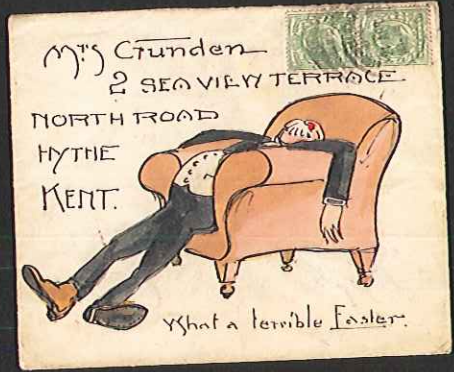 Mrs Gunden
2 SEA VIEW TERRACE
NORTH ROAD
HYTHE
KENT.
What a terrible Easter.